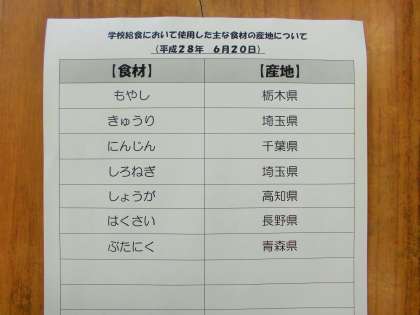 学校給食において使用した主な食材の産地について
（平成２８年　６月２０日）
【食材】　【産地】
もやし　栃木県
きゅうり　埼玉県
にんじん　千葉県
しろねぎ　埼玉県
しょうが　高知県
はくさい　長野県
ぶたにく　青森県